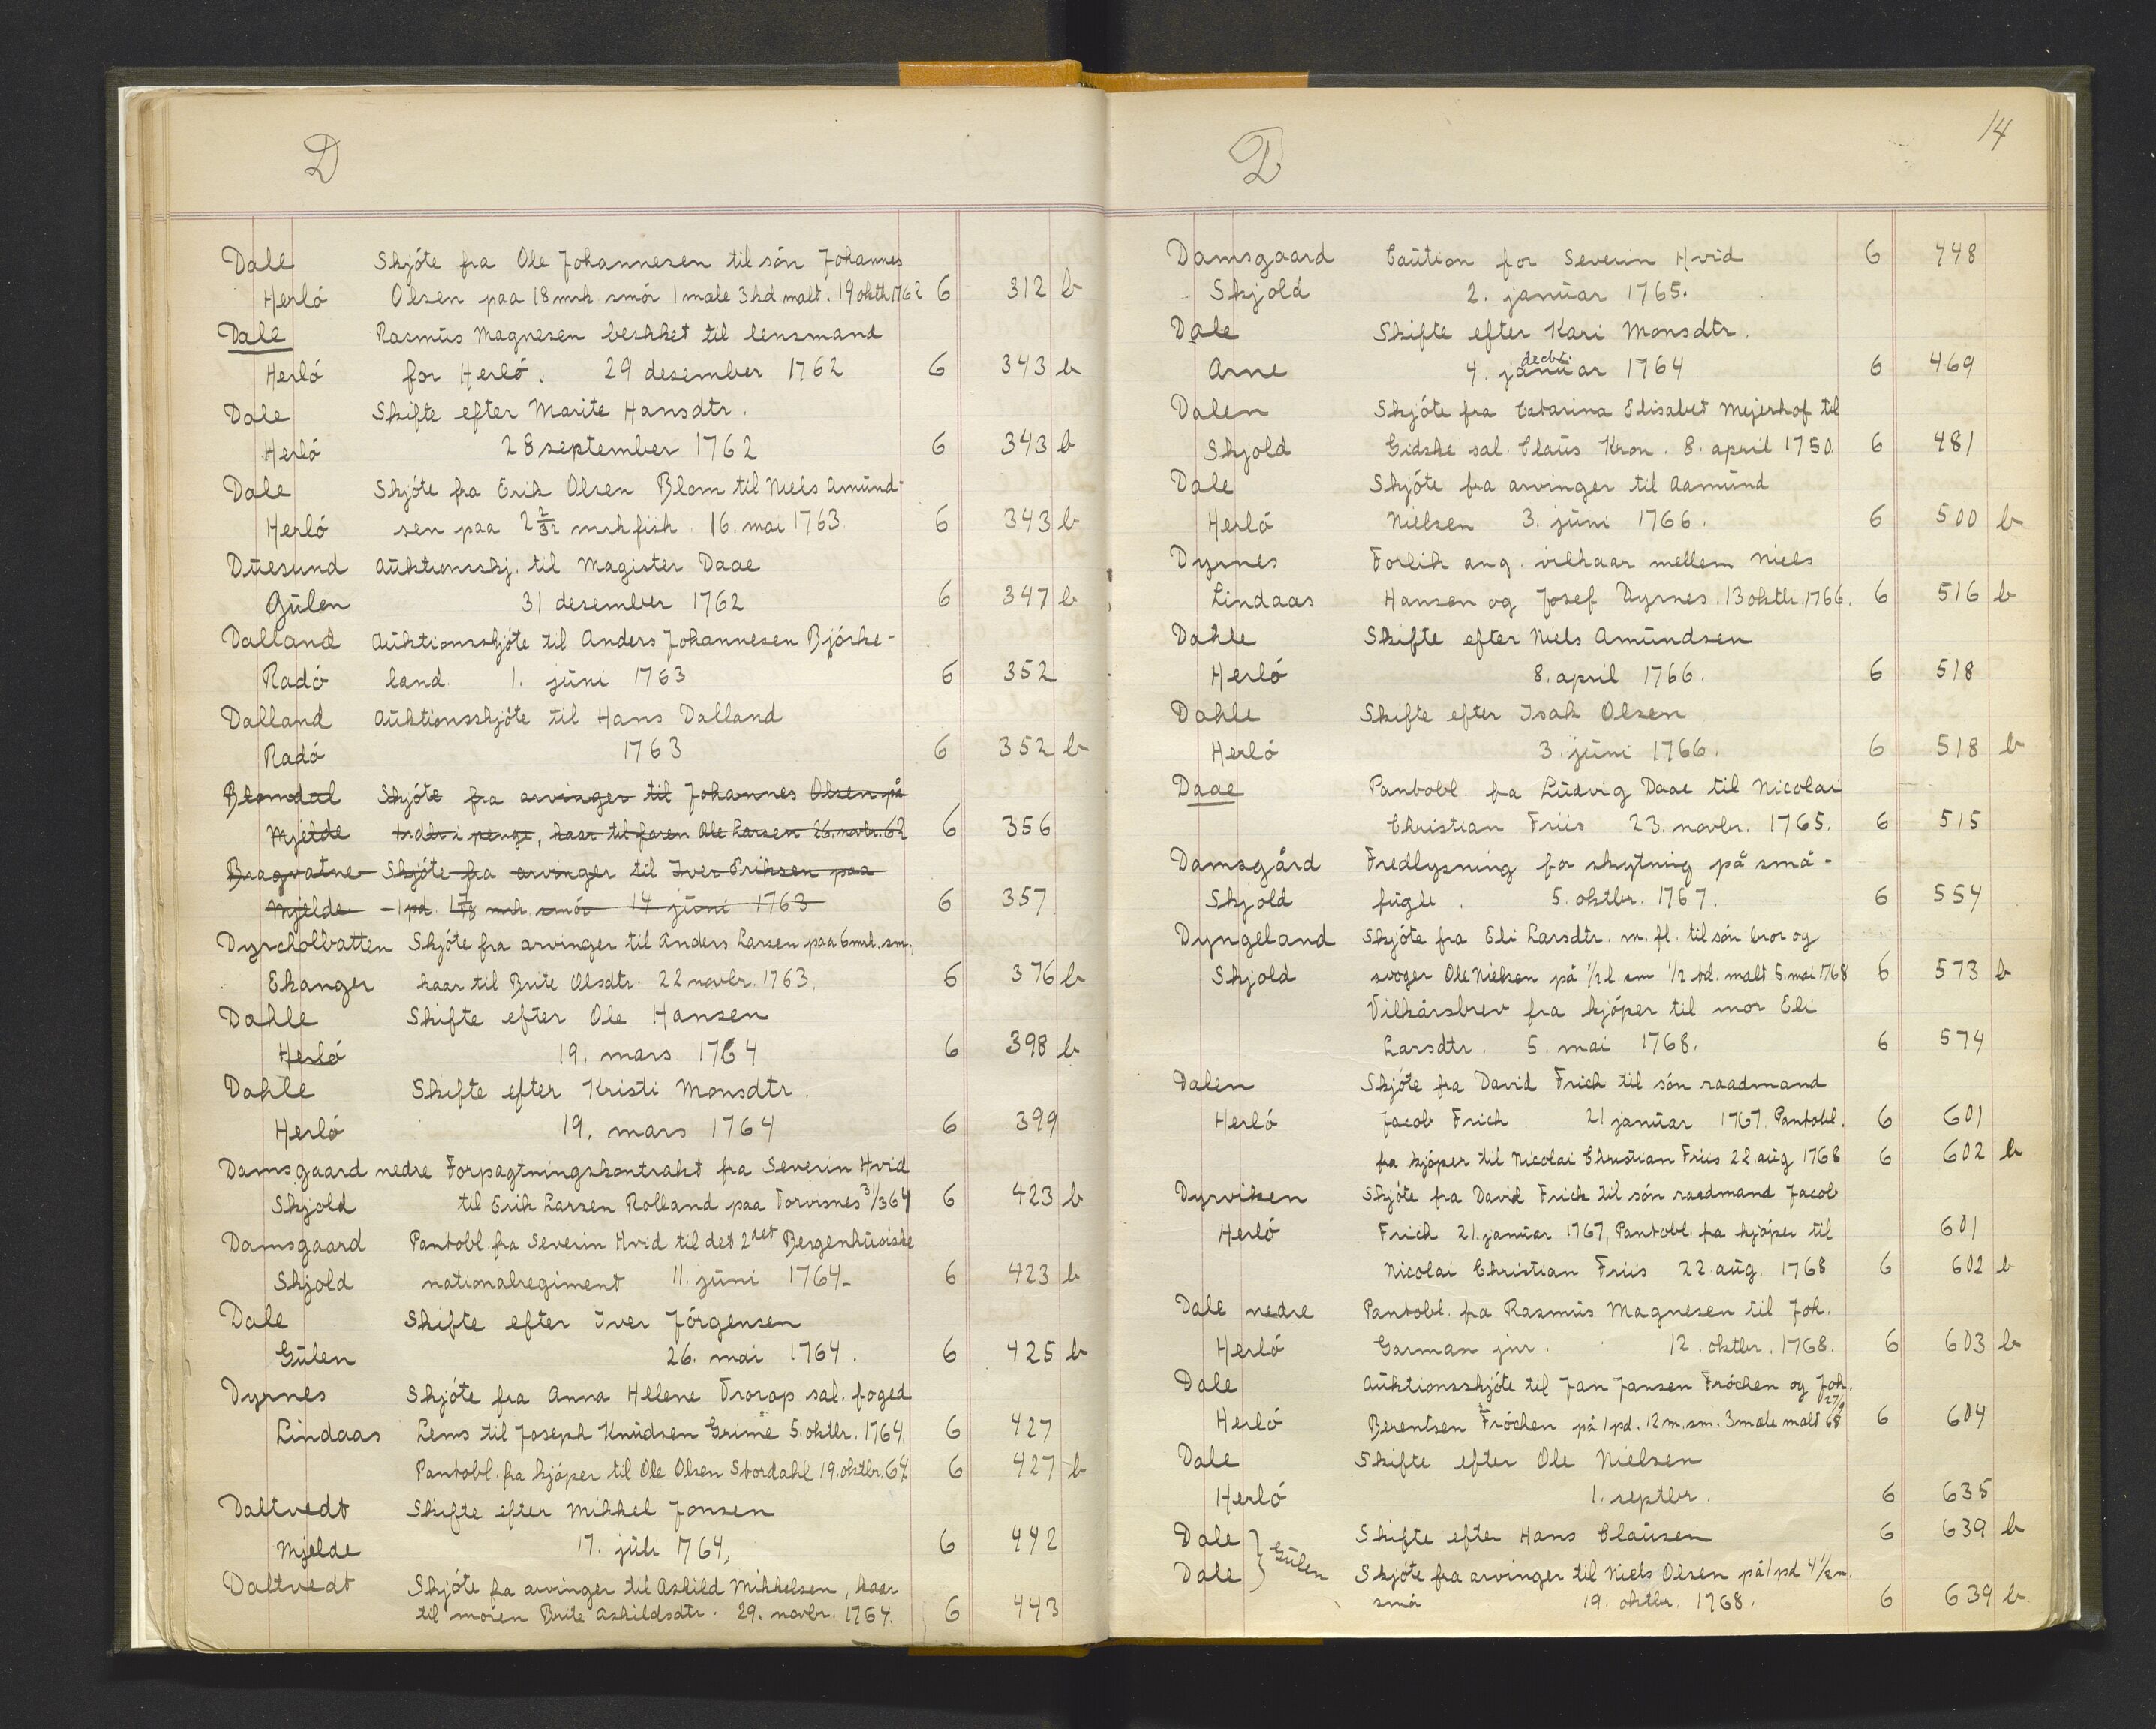 D
Dale Skjöte fra Ole Johannesen til sön Johannes
Herlö Olsen paa 18 mrk. smör 1 mæle 3 hd malt. 19 oktb 1762 6 312 b
Dale Rasmus Magnesen beskket til lensmand
Herlö for Herlö. 29 desember 1762 6 343 b
Dale Skifte efter Marite Hansdtr.
Herlö 28 september 1762 6 343 b
Dale Skjöte fra Erik Olsen Blom til Niels Amund-
Herlö sen paa 2 2/32 mrk fisk. 16. mai 1763 6 343 b
Duesund Auktionsskj. til Magister Daae
Gulen 31 desember 1762 6 347 b
Dalland Auktionsskjöte til Anders Johannesen Björke-
Radö land. 1. juni 1763 6 352
Dalland Auktionsskjöte til Hans Dalland
Radö 1763 6 352 b
Blomdal Skjöte fra arvinger til Johannes Olsen på
Mjelde i penge, kaar til faren Ole Larsen 26. novbr. 62 6 356
Bragvatne Skjöte fra arvinger til Iver Eriksen paa
Mjelde 1 pd. mrk. smör 14 juni 1763 6 357
Dyrcholbatten Skjöte fra arvinger til Anders Larsen paa 6 mrk. sm,
Ekanger kaar til Brite Olsdtr. 22 novbr. 1763. 6 376 b
Dahle Skifte efter Ole Hansen
Herlö 19. mars 1764 6 398 b
Dahle Skifte efter Kristi Monsdtr.
Herlö 19. mars 1764 6 399
Damsgaard nedre Forpagtningskontrakt fra Severin Hvid
Skjold til Erik Larsen Rolland paa Torvisnes 31/3 64 6 423 b
Damsgaard Pantobl. fra Severin Hvid til det 2det Bergenhusiske
Skjold nationalregiment 11. juni 1764- 6 423 b
Dale Skifte efter Iver Jörgensen
Gulen 26. mai 1764. 6 425 b
Dyrnes Skjöte fra Anna Helene Trorop sal. foged
Lindaas Lems til Joseph Knudsen Grime 5. oktbr. 1764. 6 427
Pantobl. fra kjöper til Ole Olsen Stordahl 19. oktbr. 64 6 427 b
Daltvedt Skifte efter Mikkel Jonsen
Mjelde 17. juli 1764, 6 442
Daltvedt Skjöte fra arvinger til Askild Mikkelsen, kaar
til moren Brite Askildsdtr. 29. novbr. 1764. 6 443
14
D
Damsgaard Caution for Severin Hvid 6 448
Skjold 2. januar 1765.
Dale Skifte efter Kari Monsdtr.
decbr.
Arne 4. januar 1764 6 469
Dalen Skjöte fra Catarina Elisabet Mejerhof til
Skjold Gidske sal. Claus Kron. 8. april 1750. 6 481
Dale Skjöte fra arvinger til Aamund
Herlö Nielsen 3. juni 1766. 6 500 b
Dyrnes Forlik ang. vilkaar mellem Niels
Lindaas Hansen og Josef Dyrnes. 13 oktbr. 1766. 6 516 b
Dahle Skifte efter Niels Amundsen
Herlö 8. april 1766. 6 518
Dahle Skifte efter Isak Olsen
Herlö 3. juni 1766. 6 518 b
Daae Pantobl. fra Ludvig Daae til Nicolai
Christian Friis 23. novbr. 1765. 6 515
Damsgård Fredlysning for skytning på små-
Skjold fugle. 5. oktbr. 1767. 6 554
Dyngeland Skjöte fra Eli Larsdtr. m. fl. til sön bror og
Skjold svoger Ole Nielsen på 1/2 l. sm 1/2 td. malt 5. mai 1768 6 573 b
Vilkårsbrev fra kjöper til mor Eli
Larsdtr. 5. mai 1768. 6 574
Dalen Skjöte fra David Frich til sön raadmand
Herlö Jacob Frich 21 januar 1767. Pantobl. 6 601
fra kjöper til Nicolai Christian Friis 22. aug 1768 6 602 b
Dyrviken Skjöte fra David Frick til sön raadmand Jacob
Herlö Frich 21. januar 1767, Pantobl. fra kjöper til 601
Nicolai Christian Friis 22. aug. 1768 6 602 b
Dale nedre Pantobl. fra Rasmus Magnesen til Joh.
Herlö Garman jnr. 12. oktbr. 1768. 6 603 b
Dale Auktionsskjöte til Jan Jansen Fröchen og Joh.
Herlö Berentsen Fröchen på 1 pd. 12 m. sm. 3 mæle malt 27/9 68 6 604
Dale Skifte efter Ole Nielsen
Herlö 1. septbr. 6 635
Dale } Gulen Skifte efter Hans Clausen 6 639 b
Dale Skjöte fra arvinger til Niels Olsen på 1 pd 4 1/2 m.
smör 19. oktbr. 1768. 6 639 b